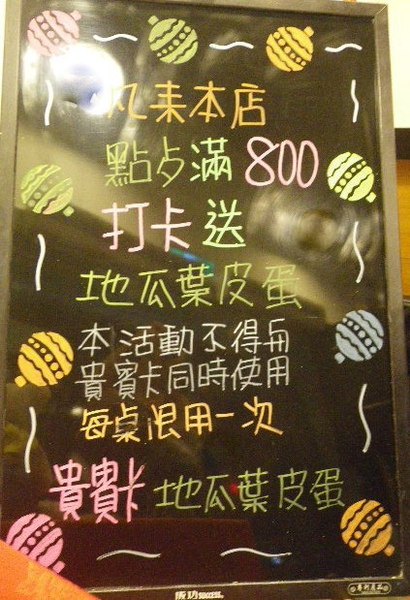 凡来本店
點歺滿 800
打卡送
地瓜葉皮蛋
本活動不得与
貴賓卡同時使用
每桌限用一次
貴賓卡 地瓜葉皮蛋
成功 SUCCESS.